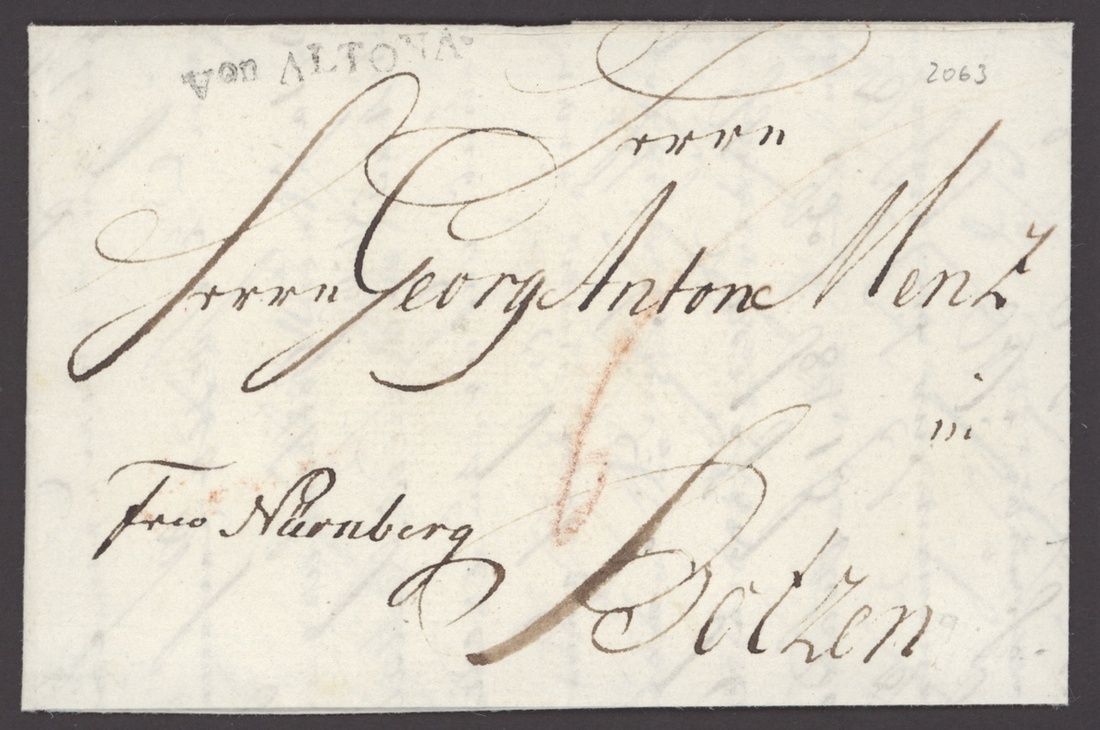 von ALTONA.
2063
Herrn
Herrn Georg Anton Menz
in
Frco Nürnberg
Botzen